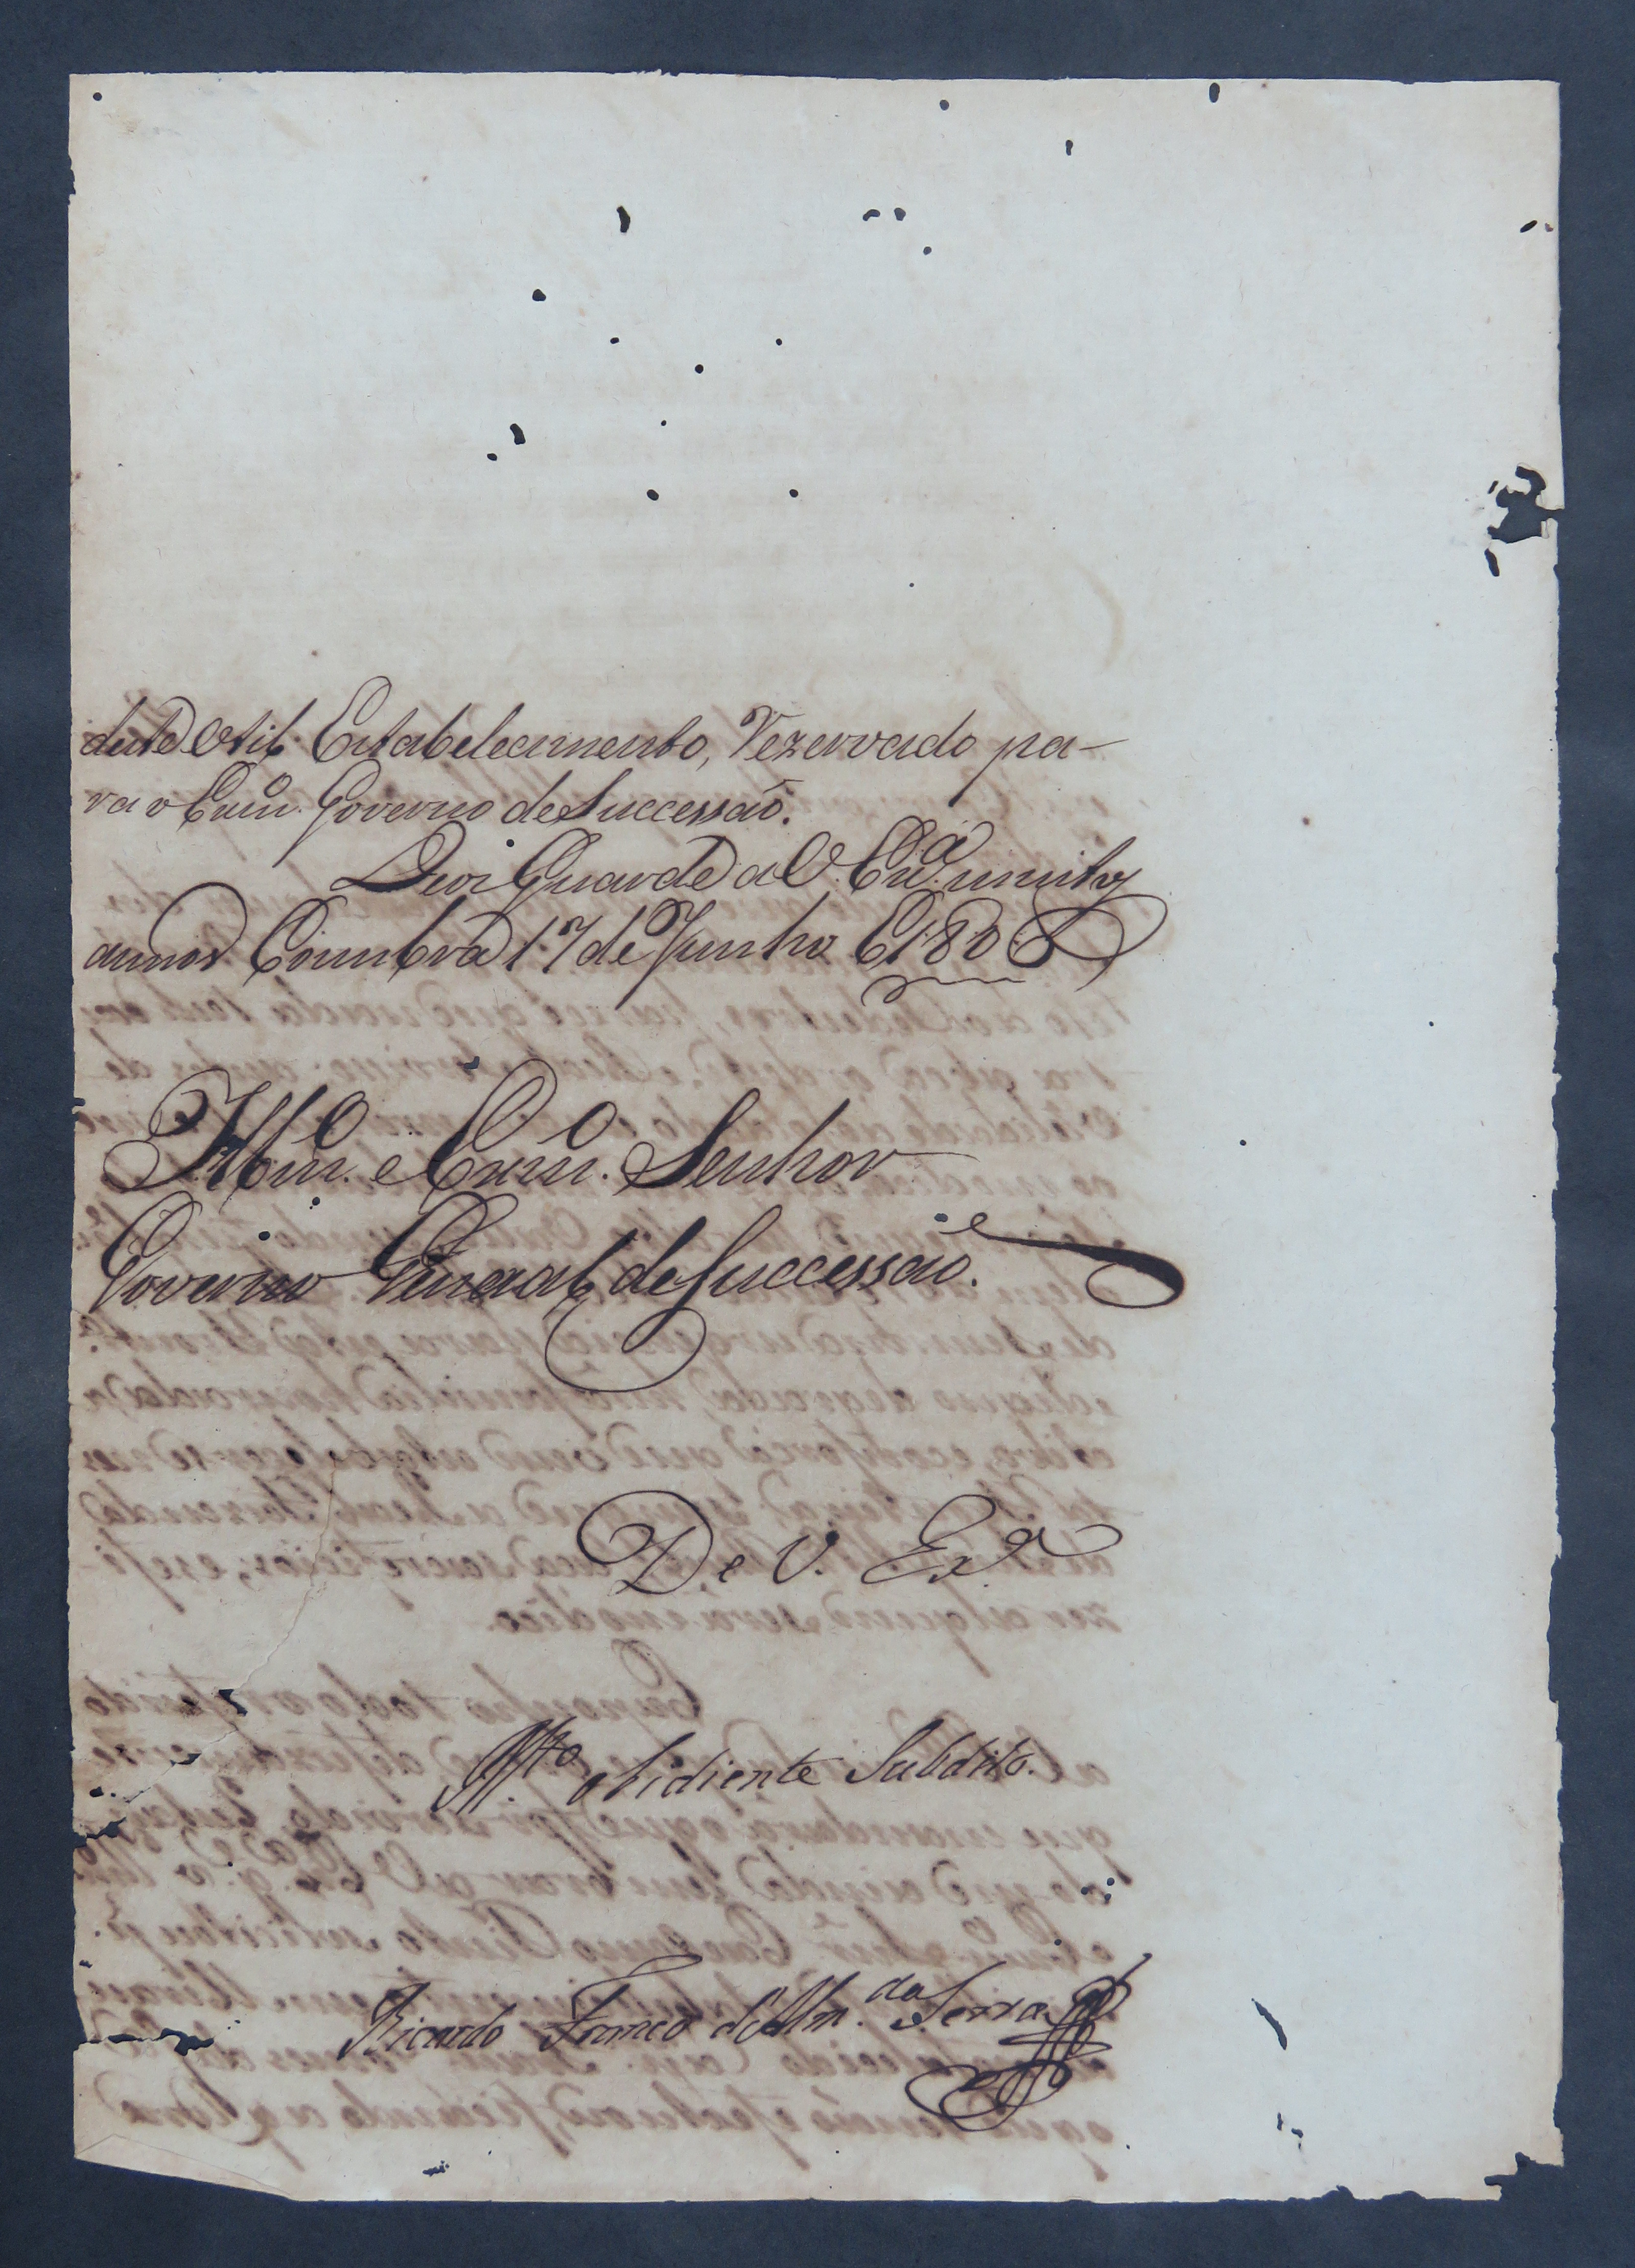 deste Util Estabelecimento, Rezervado pa-
ra o Exm.º Governo de Successaõ.
Deos Guarde a V. Ex.ª muitos
annos Coimbra 17 de Junho
Illm.º e Exm.º Senhor
Governo General de Successaõ.
De V. Ex.ª
M.to obidiente Subdito.
Ricardo Franco d'Alm.da Serra